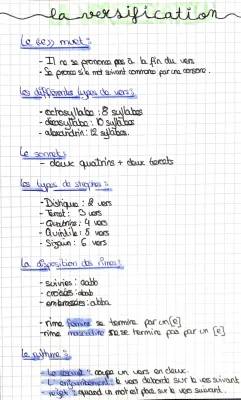 la versification
Le «e» muet :
- Il ne se prononce pas à la fin du vers
- Se prononce si le mot suivant commence par une consonne.
les différentes types de vers :
- octosyllabe : 8 syllabes
- décasyllabe : 10 syllabes
- alexandrin : 12 syllabes.
Le sonnet :
- deux quatrins + deux tercets
Les types de strophes :
- Distique : 2 vers
- Tercet : 3 vers
- Quatrin : 4 vers
- Quintile : 5 vers
- Sizain : 6 vers
La disposition des rimes :
- suivies : aabb
- croisées : abab
- embrassées : abba
- rime féminine se termine par un [e]
- rime masculine se termine pas par un [e]
Le rythme :
- La césure : coupe un vers en deux.
- L'enjambement : le vers déborde sur le vers suivant
- rejet : quand un mot est plus sur le vers suivant.